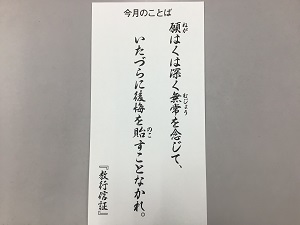 今月のことば
願はくは深く無常を念じて、
いたづらに後悔を貽すことなかれ。
『教行信証』